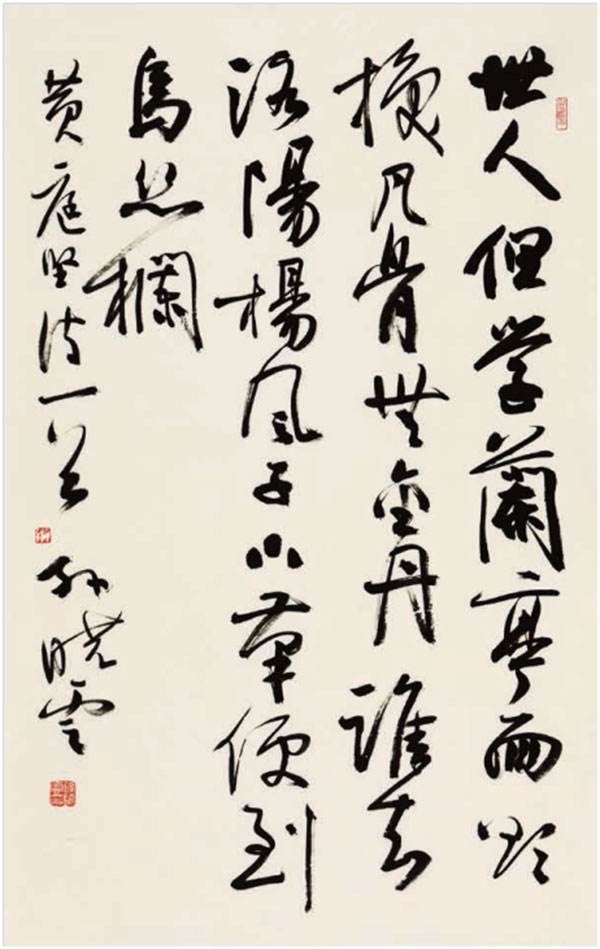 世人但学蘭亭面欲
换凡骨無金丹誰知
洛陽楊風子下筆便到
烏丝欄
黄庭坚诗一首 孙晓雲